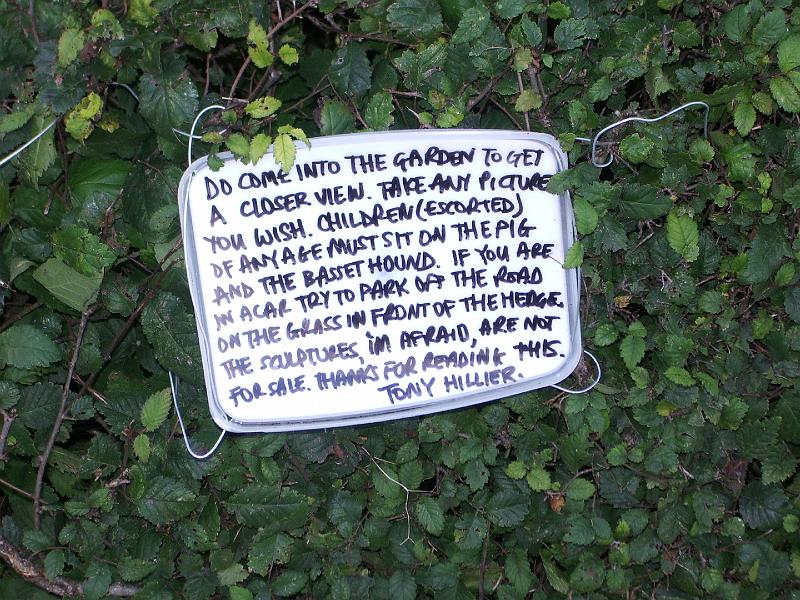 DO COME INTO THE GARDEN TO GET
A CLOSER VIEW. TAKE ANY PICTURE
YOU WISH. CHILDREN (ESCORTED)
OF ANY AGE MUST SIT ON THE PIG
AND THE BASSET HOUND. IF YOU ARE
IN A CAR TRY TO PARK OFF THE ROAD
ON THE GRASS IN FRONT OF THE HEDGE.
THE SCULPTURES, I'M AFRAID, ARE NOT
FOR SALE. THANKS FOR READING THIS.
TONY HILLIER.